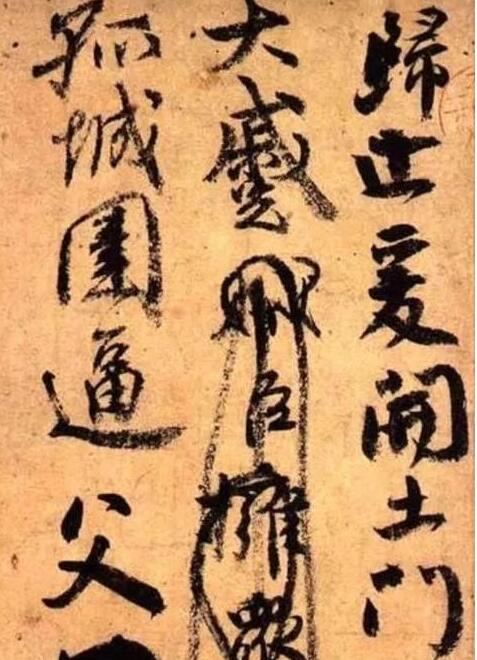 歸止爰開土門
大蹙賊臣擁眾
孤城圍逼父